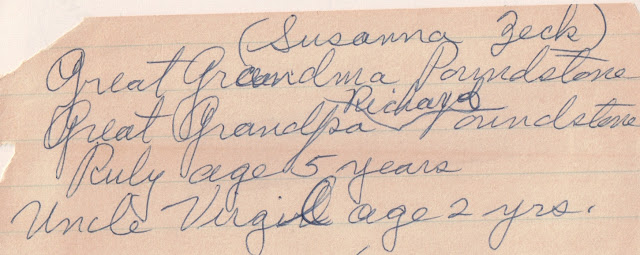 (Susanna Zeck)
Great Grandma Poundstone
Great Grandpa Richard Poundstone
Ruly age 5 years
Uncle Virgil age 2 yrs.